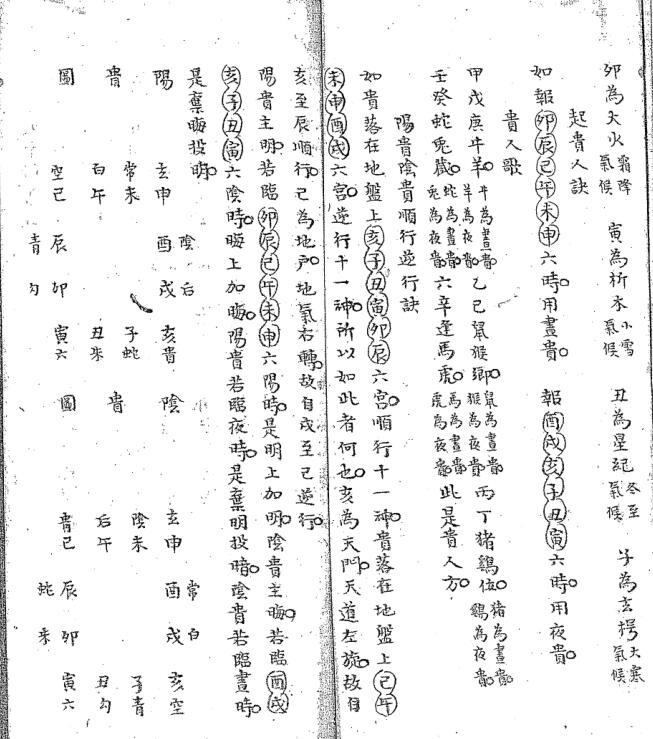 卯為大火霜降氣候 寅為析木小雪氣候 丑為星紀冬至氣候 子為玄枵大寒氣候
起貴人訣
如報卯辰巳午未申六時用晝貴 報酉戌亥子丑寅六時用夜貴
貴人歌
甲戊庚牛羊牛為晝貴羊為夜貴 乙己鼠猴鄉鼠為晝貴猴為夜貴 丙丁猪鷄位猪為晝貴鷄為夜貴
壬癸蛇兎藏蛇為晝貴兎為夜貴 六辛逢馬虎馬為晝貴虎為夜貴 此是貴人方
陽貴陰貴順行逆行訣
如貴落在地盤上亥子丑寅卯辰六宮順行十一神貴落在地盤上巳午
未申酉戌六宮逆行十一神所以如此者何也亥為天門天道左旋故自
亥至辰順行巳為地戶地氣右轉故自戌至巳逆行
陽貴主明若臨卯辰巳午未申六陽時是明上加明陰貴主晦若臨酉戌
亥子丑寅六陰時晦上加晦陽貴若臨夜時是棄明投暗陰貴若臨晝時
是棄晦投明
陽貴圖
玄申 陰酉 后戌 亥貴
常未 子蛇
白午 丑朱
空巳 青辰 勾卯 寅六
陰貴圖
玄申 常酉 白戌 亥空
陰未 子青
后午 丑勾
貴巳 蛇辰 朱卯 寅六